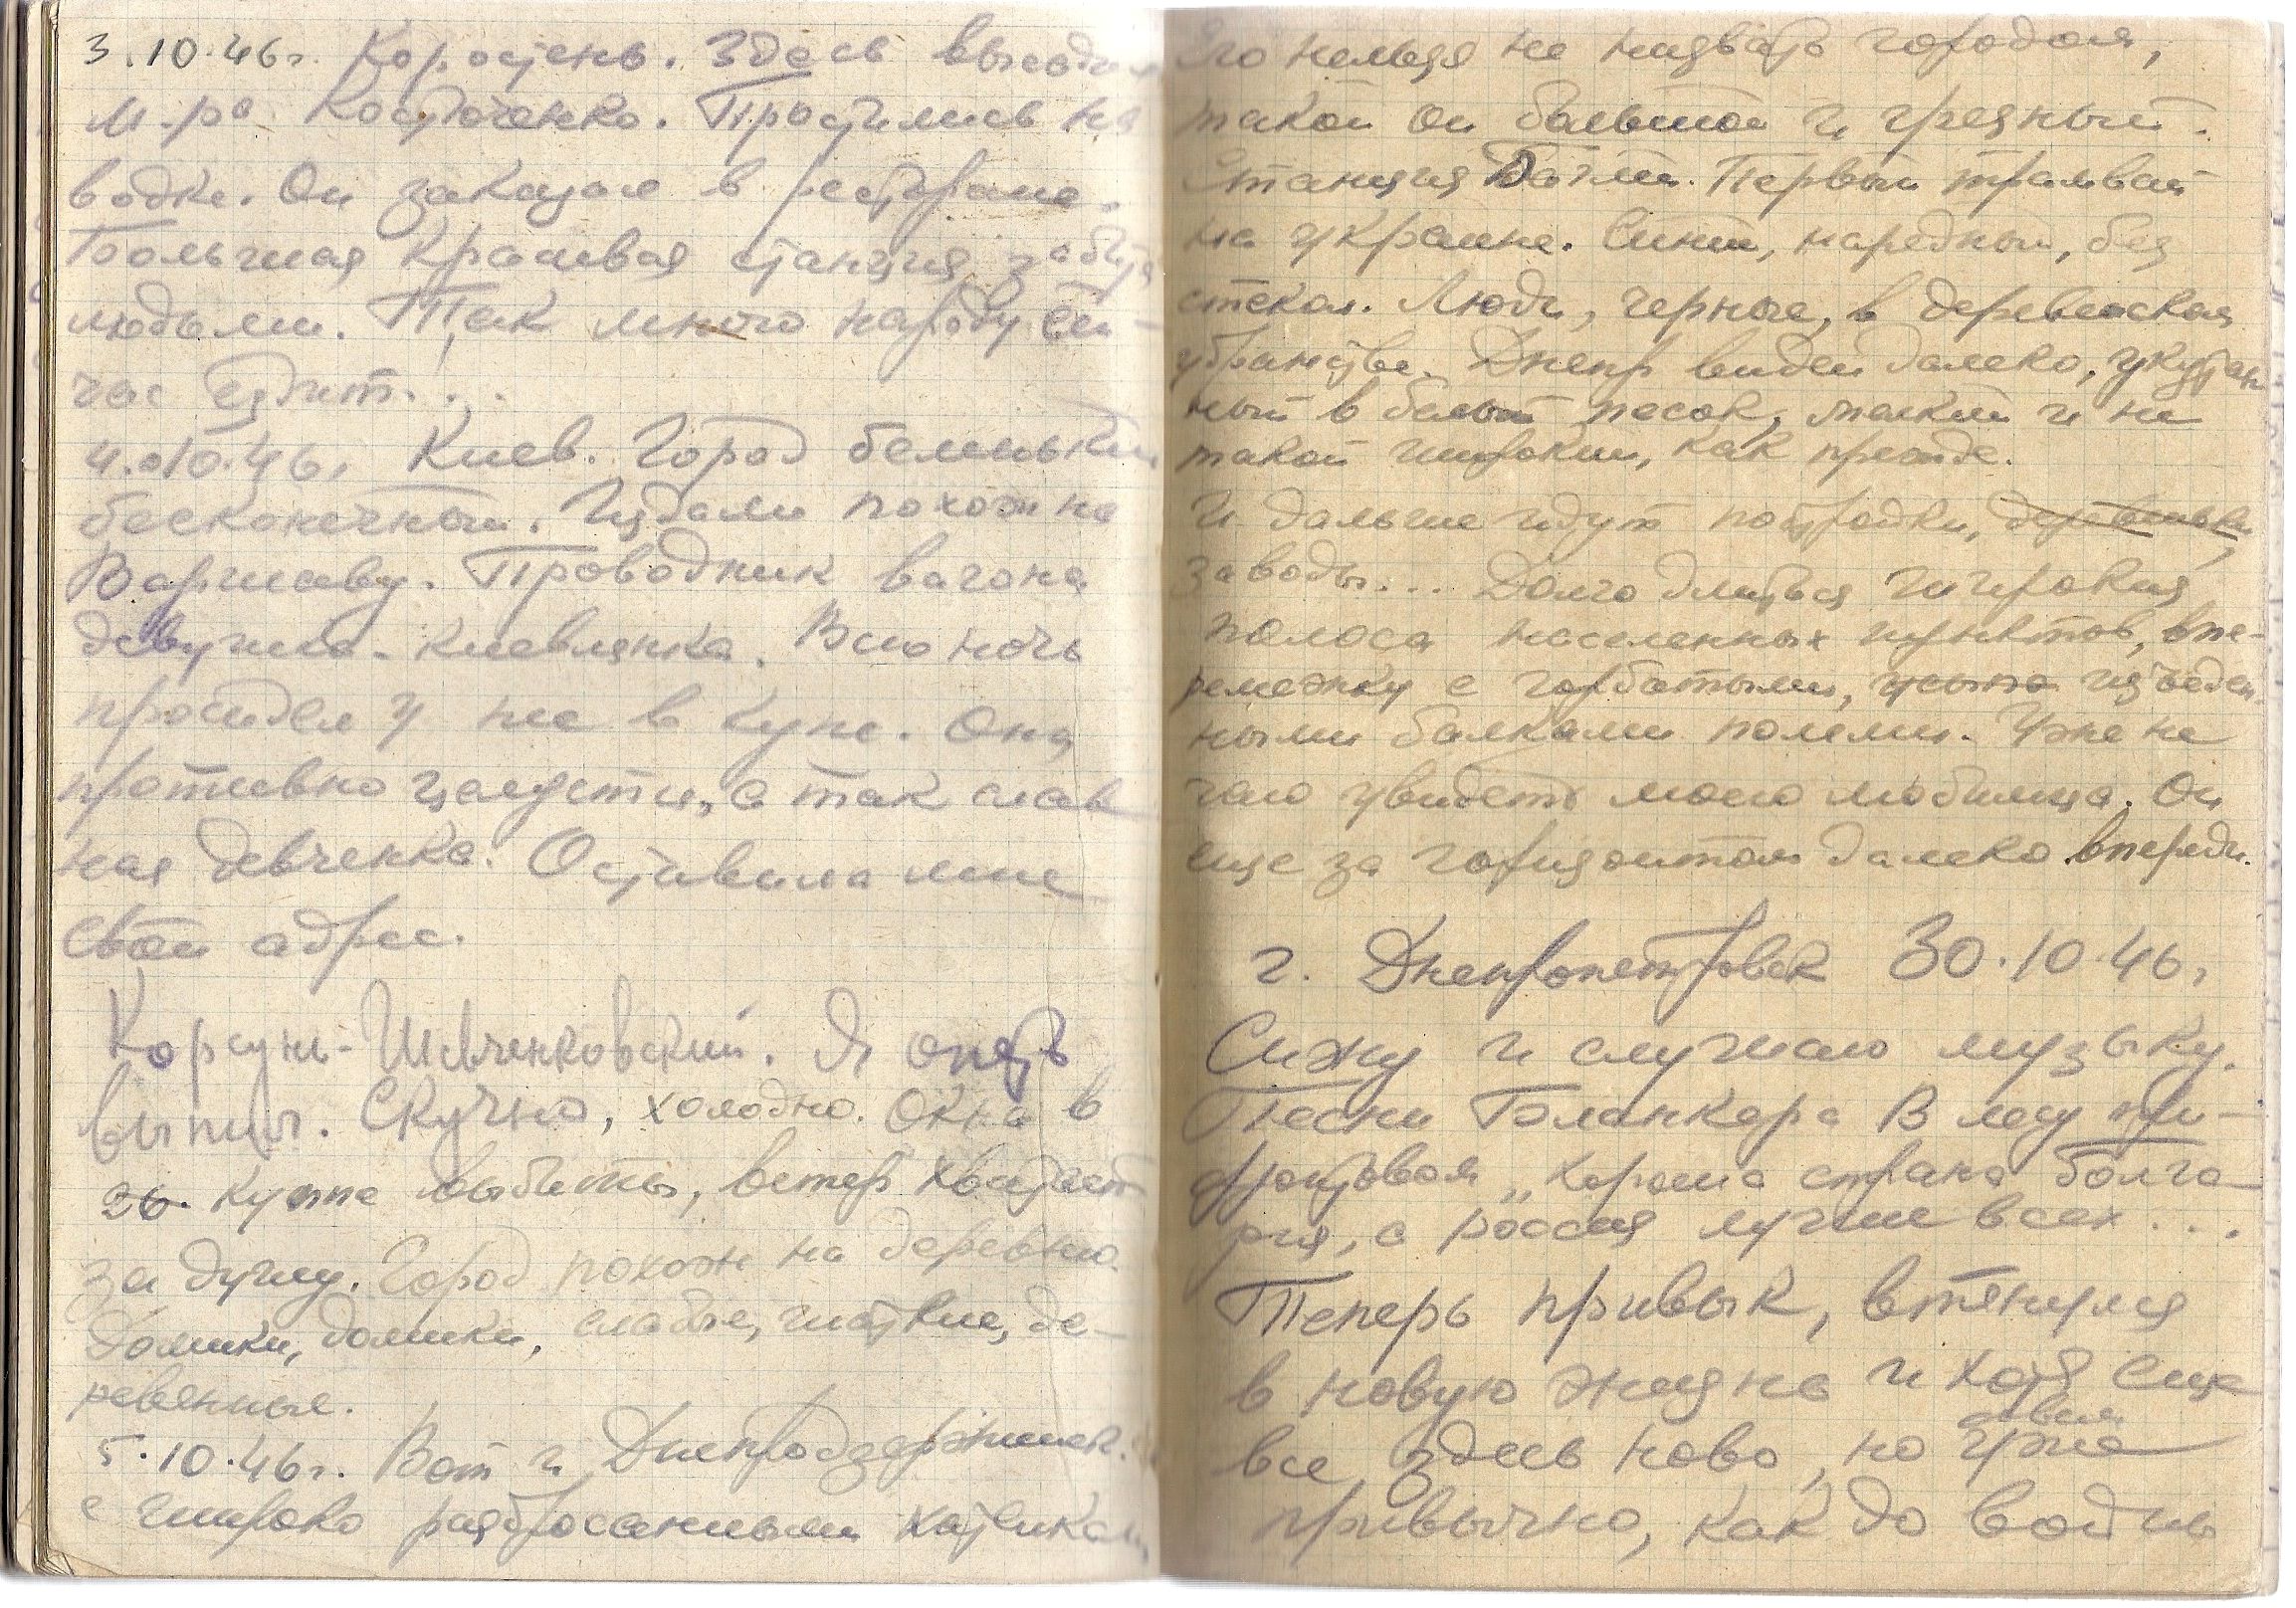 3.10.46г. Коростень. Здесь высадили
м-ра Косюченко. Простились на
водке. Он заказал в ресторане.
Большая красивая станция, забита
людьми. Так много народу сей-
час ездит...
4.10.46, Киев. Город беленький
бесконечный. Издали похож на
Варшаву. Проводник вагона
девушка-киевлянка. Всю ночь
просидел у нее в купе. Она
противно цалуется, а так слав
ная девченка. Оставила мне
свой адрес.
Корсунь-Шевченковский. Я опять
выпил. Скучно, холодно. Окна в
купе выбиты, ветер хватает
за душу. Город похож на деревню.
Домики, домики, слабые, ветхие, де-
ревянные.
5.10.46г. Вот и Днепродзержинск.
с широко разбросанными хатиками
Его нельзя не назвать городом,
такой он большой и грязный.
Станция Баглей. Первый трамвай
на украине. Синий, нарядный, без
стекол. Люди, черные, в деревенском
убранстве. Днепр виден далеко, укутан
ный в белый песок, мелкий и не
такой широкий, как прежде.
И дальше идут постройки,
заводы... Долго длиться широкая
полоса населенных пунктов, впе-
ремежку с горбатыми, изъеден
ными балками полями. Уже не
чаю увидеть моего любимца. Он
еще за горизонтом далеко впереди.
г. Днепропетровск 30.10.46,
Сижу и слушаю музыку.
Песни Бланкера В лесу при-
фронтовом „Хороша страна Болга-
рия, а Россия лучше всех...
Теперь привык, втянулся
в новую жизнь и хотя еще
все здесь ново, но уже
привычно, как до войны